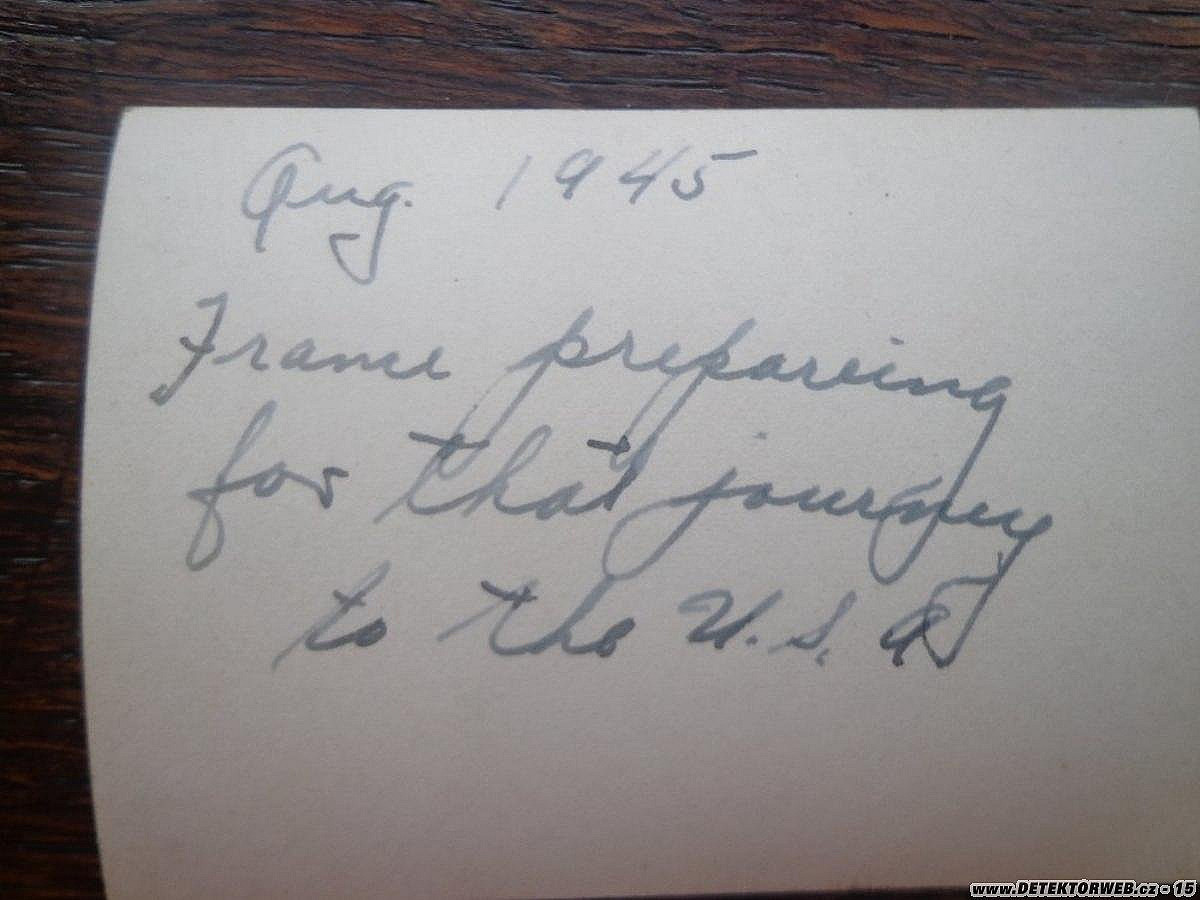 Aug. 1945
France prepareing
for that journey
to the U.S.A
www.DETEKTORWEB.cz - 15